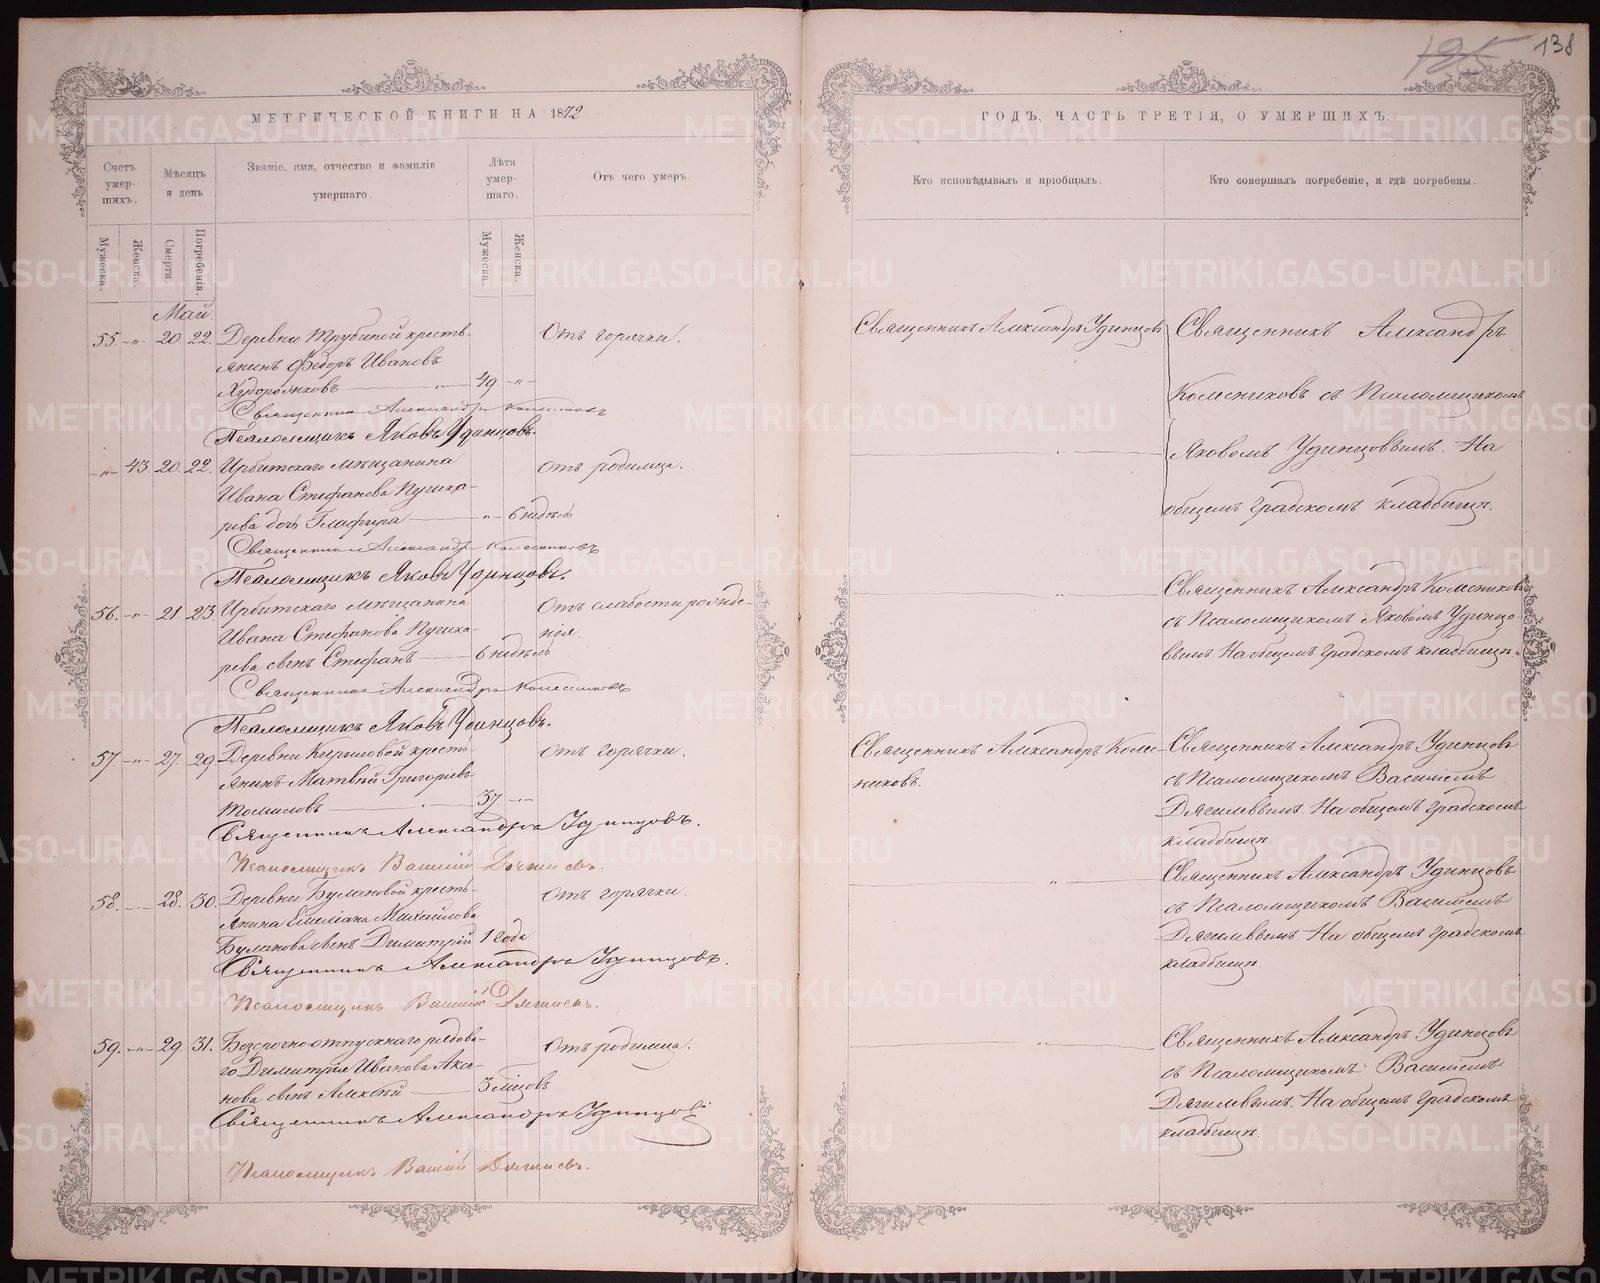 125 138
МЕТРИЧЕСКОЙ КНИГИ НА 1872
ГОДЪ, ЧАСТЬ ТРЕТІЯ, О УМЕРШИХЪ.
Счетъ умерших.
Мѣсяцъ и день
Званіе, имя, отчество и фамилія
умершаго.
Лѣта умершаго.
Отъ чего умеръ.
Кто исповѣдывалъ и пріобщалъ.
Кто совершалъ погребеніе, и гдѣ погребены.
Мужеска.
Женска.
Смерти.
Погребенія.
Мужеска.
Женска.
Май.
55. -„- 20. 22. Деревни Трубиной кресть-
янинъ Федоръ Ивановъ
Худорожковъ 49 -„-
Отъ горячки.
Священникъ Александръ Удинцовъ
Священникъ Александръ
Колесниковъ съ Псаломщикомъ
Яковомъ Удинцовымъ. На
общемъ градскомъ кладбищѣ.
Священникъ Александръ Колесниковъ
Псаломщикъ Яковъ Удинцовъ.
-„- 43. 20. 22. Ирбитскаго мѣщанина
Ивана Стефанова Пугика-
рева дочь Глафира -„- 6 недѣль
Отъ родимца.
Священникъ Александръ Колесниковъ
Псаломщикъ Яковъ Удинцовъ.
56. -„- 21. 23. Ирбитскаго мѣщанина
Ивана Стефанова Пугика-
рева сынъ Стефанъ 6 недѣль
Отъ слабости рожде-
нія.
Священникъ Александръ Колесниковъ
съ Псаломщикомъ Яковомъ Удинцо-
вымъ. На общемъ градскомъ кладбищѣ.
Священникъ Александръ Колесниковъ
Псаломщикъ Яковъ Удинцовъ.
57. -„- 27. 29. Деревни Кириловой кресть-
янинъ Матвѣй Григорьевъ
Томиловъ 37. -„-
Отъ горячки.
Священникъ Александръ Колес-
никовъ.
Священникъ Александръ Удинцовъ
съ Псаломщикомъ Василіемъ
Дягилевымъ. На общемъ градскомъ
кладбищѣ.
Священникъ Александръ Удинцовъ.
Псаломщикъ Василій Дягилевъ.
58. 28. 30. Деревни Булановой кресть-
янина Емеліана Михайлова
Буланова сынъ Димитрій 1 года
Отъ горячки.
Священникъ Александръ Удинцовъ
съ Псаломщикомъ Василіемъ
Дягилевымъ. На общемъ градскомъ
кладбищѣ.
Священникъ Александръ Удинцовъ.
Псаломщикъ Василій Дягилевъ.
59. -„- 29. 31. Безсрочно-отпускнаго рядова-
го Димитрія Иванова Аксе-
нова сынъ Алексѣй 3 мѣсцовъ
Отъ родимца.
Священникъ Александръ Удинцовъ
съ Псаломщикомъ Василіемъ
Дягилевымъ. На общемъ градскомъ
кладбищѣ.
Священникъ Александръ Удинцовъ
Псаломщикъ Василій Дягилевъ.
METRIKI.GASO-URAL.RU